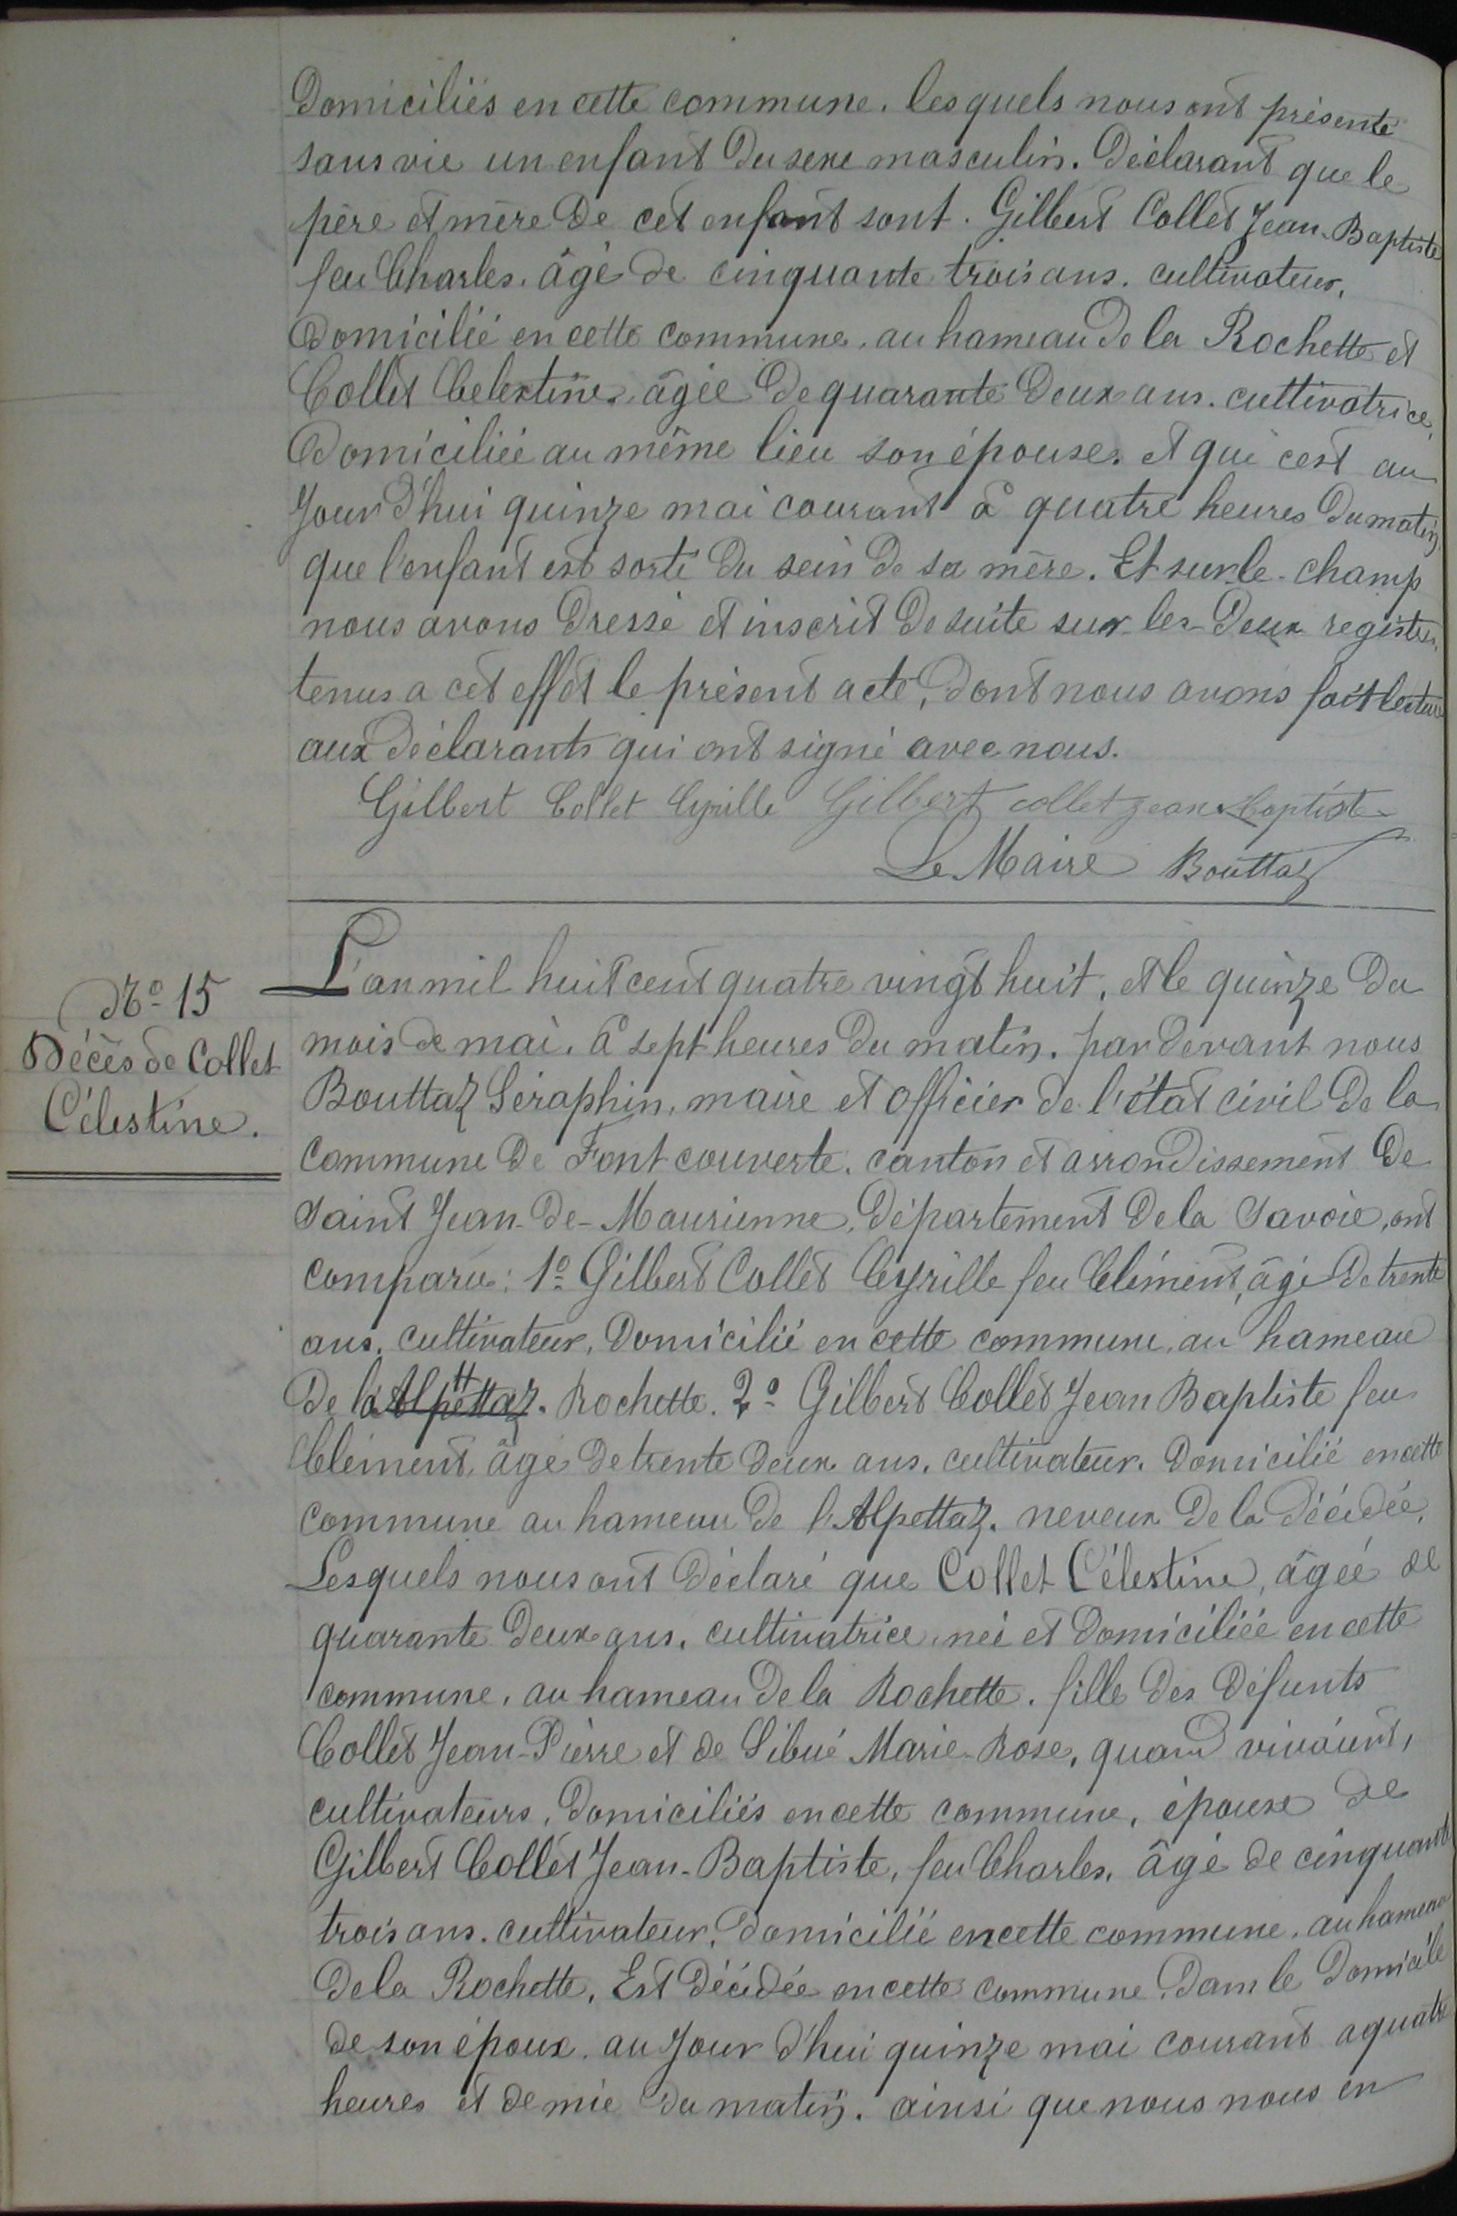 Domiciliés en cette commune. lesquels nous ont présenté
sans vie un enfant du sexe masculin. Déclarant que le
père et mère de cet enfant sont. Gilbert Collet Jean-Baptiste
feu Charles. âgé de cinquante trois ans. cultivateur,
Domicilié en cette commune. au hameau de la Rochette et
Collet Celestine. âgée de quarante deux ans. cultivatrice,
Domiciliée au même lieu son épouse. et que c'est au
jour d'hui quinze mai courant à quatre heures du matin
que l'enfant est sorti du sein de sa mère. Et sur le-champ
nous avons dressé et inscrit de suite sur les deux registres
tenus a cet effet le présent acte, dont nous avons fait lecture
aux déclarants qui ont signé avec nous.
Gilbert Collet Cyrille Gilbert collet jean Baptiste
Le Maire Bouttaz
N° 15
Décès de Collet
Célestine.
L'an mil huit cent quatre vingt huit, et le quinze du
mois de mai. à sept heures du matin. par devant nous
Bouttaz Séraphin, maire et officier de l'état civil de la
commune de Fontcouverte. canton et arrondissement de
Saint Jean-de-Maurienne, département de la Savoie, ont
comparu: 1° Gilbert Collet Cyrille feu Clément, âgé de trente
ans, cultivateur, domicilié en cette commune, au hameau
de la Alpettaz. Rochette. 2° Gilbert Collet Jean Baptiste feu
Clément, âgé de trente deux ans. cultivateur. domicilié en cette
commune au hameau de l'Alpettaz. neveux de la décédée.
Lesquels nous ont déclaré que Collet Célestine, âgée de
quarante deux ans. cultivatrice, née et domiciliée en cette
commune, au hameau de la Rochette. fille des défunts
Collet Jean-Pierre et de Sibué Marie-Rose, quand vivaient,
cultivateurs, domiciliés en cette commune, épouse de
Gilbert Collet Jean-Baptiste, feu Charles, âgé de cinquante
trois ans. cultivateur, domicilié en cette commune. au hameau
de la Rochette, Est décédée en cette commune dans le domicile
de son époux. au jour d'hui quinze mai courant a quatre
heures et demie du matin. ainsi que nous nous en